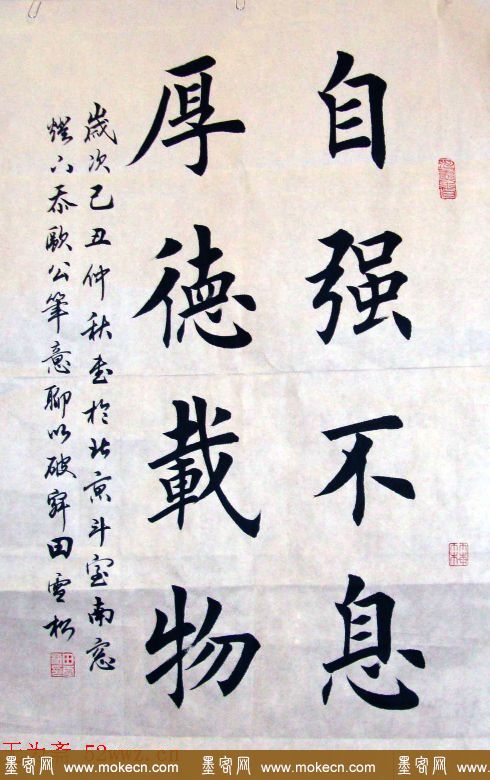 自强不息
厚德載物
歲次己丑仲秋書於北京斗室南窓
燈下忝歐公筆意聊以破寂田雪松
墨客网 www.mokecn.com 墨客网 www.mokecn.com 墨客网 www.mokecn.com